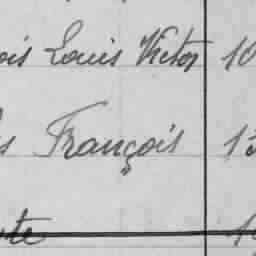 ois Louis Victor 10
s François 13
te